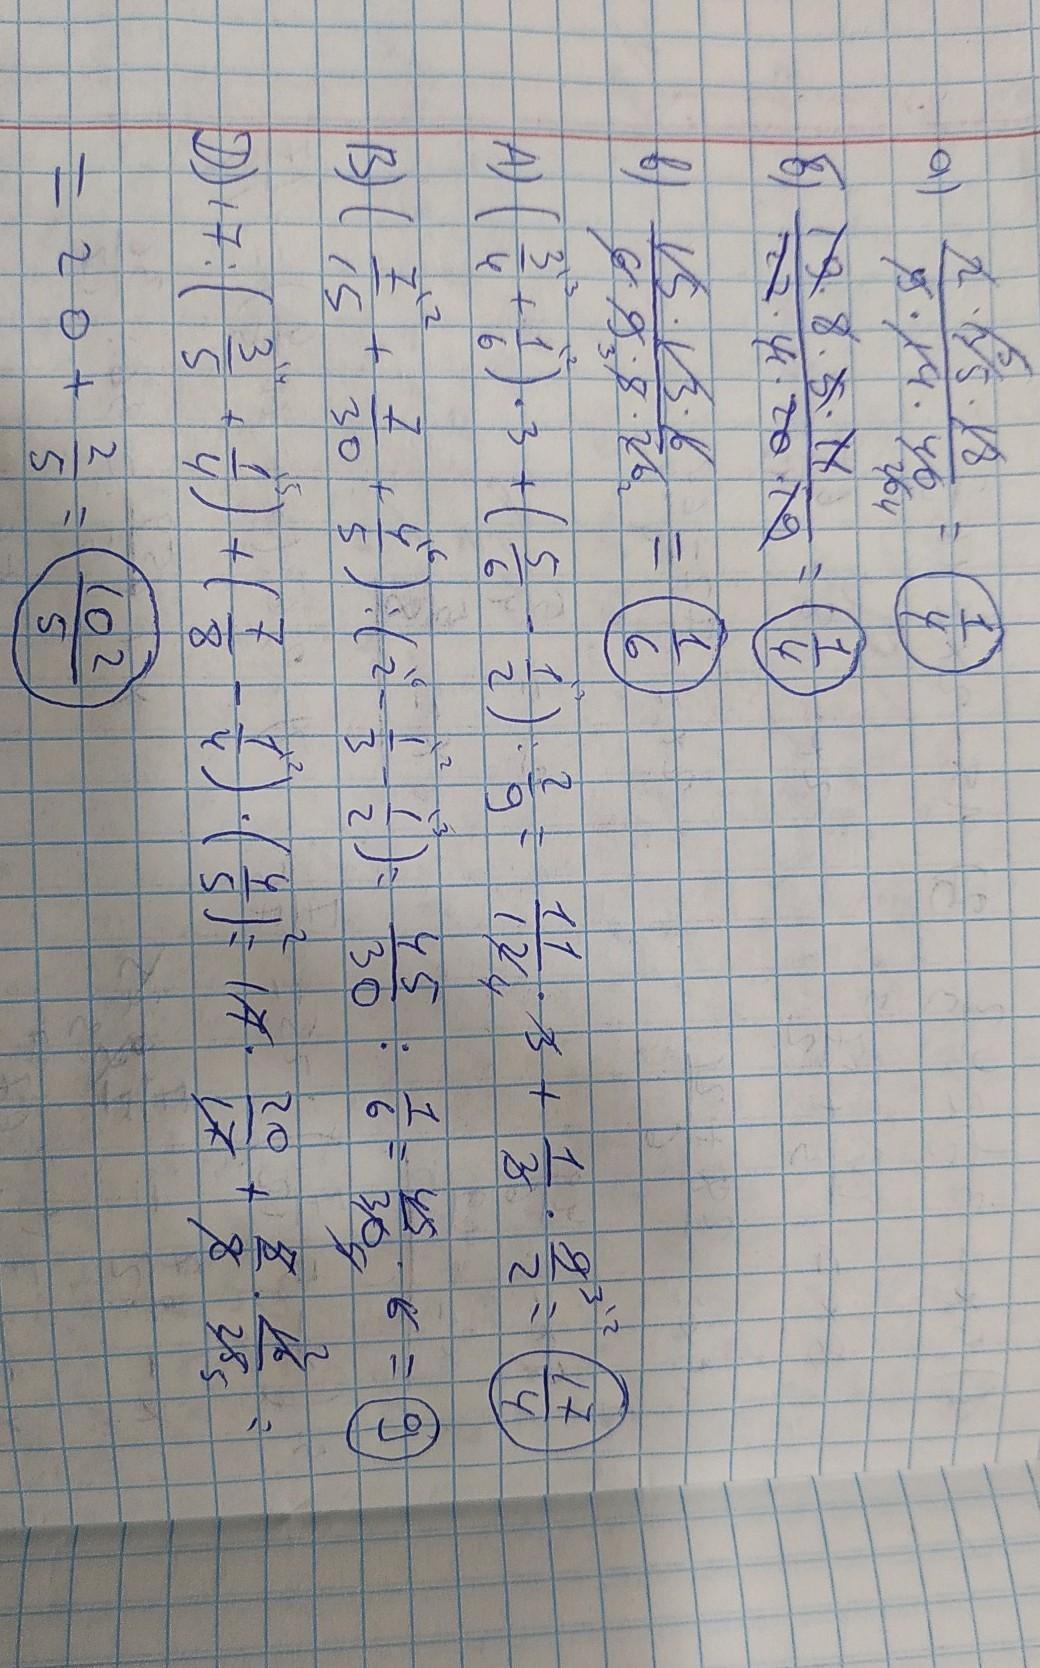 а) (2 · 15 · 18) / (5 · 14 · 46) = 1/4
б) (17 · 8 · 5 · 14) / (7 · 4 · 20 · 19) = 1/4
в) (15 · 13 · 6) / (6 · 9 · 8 · 26) = 1/6
А) (3/4 + 1/6) · 3 + (5/6 - 1/2) : 2/9 = 11/12 · 3 + 1/3 · 9/2 = 17/4
В) (7/15 + 7/30 + 4/5) : (2 - 1/3 - 1/2) = 45/30 : 7/6 = 45/30 · 6 = 9
Д) 17 : (3/5 + 1/4) + (7/8 - 1/4) · (4/5)² = 17 · 20/17 + 5/8 · 16/25 =
= 20 + 2/5 = 102/5